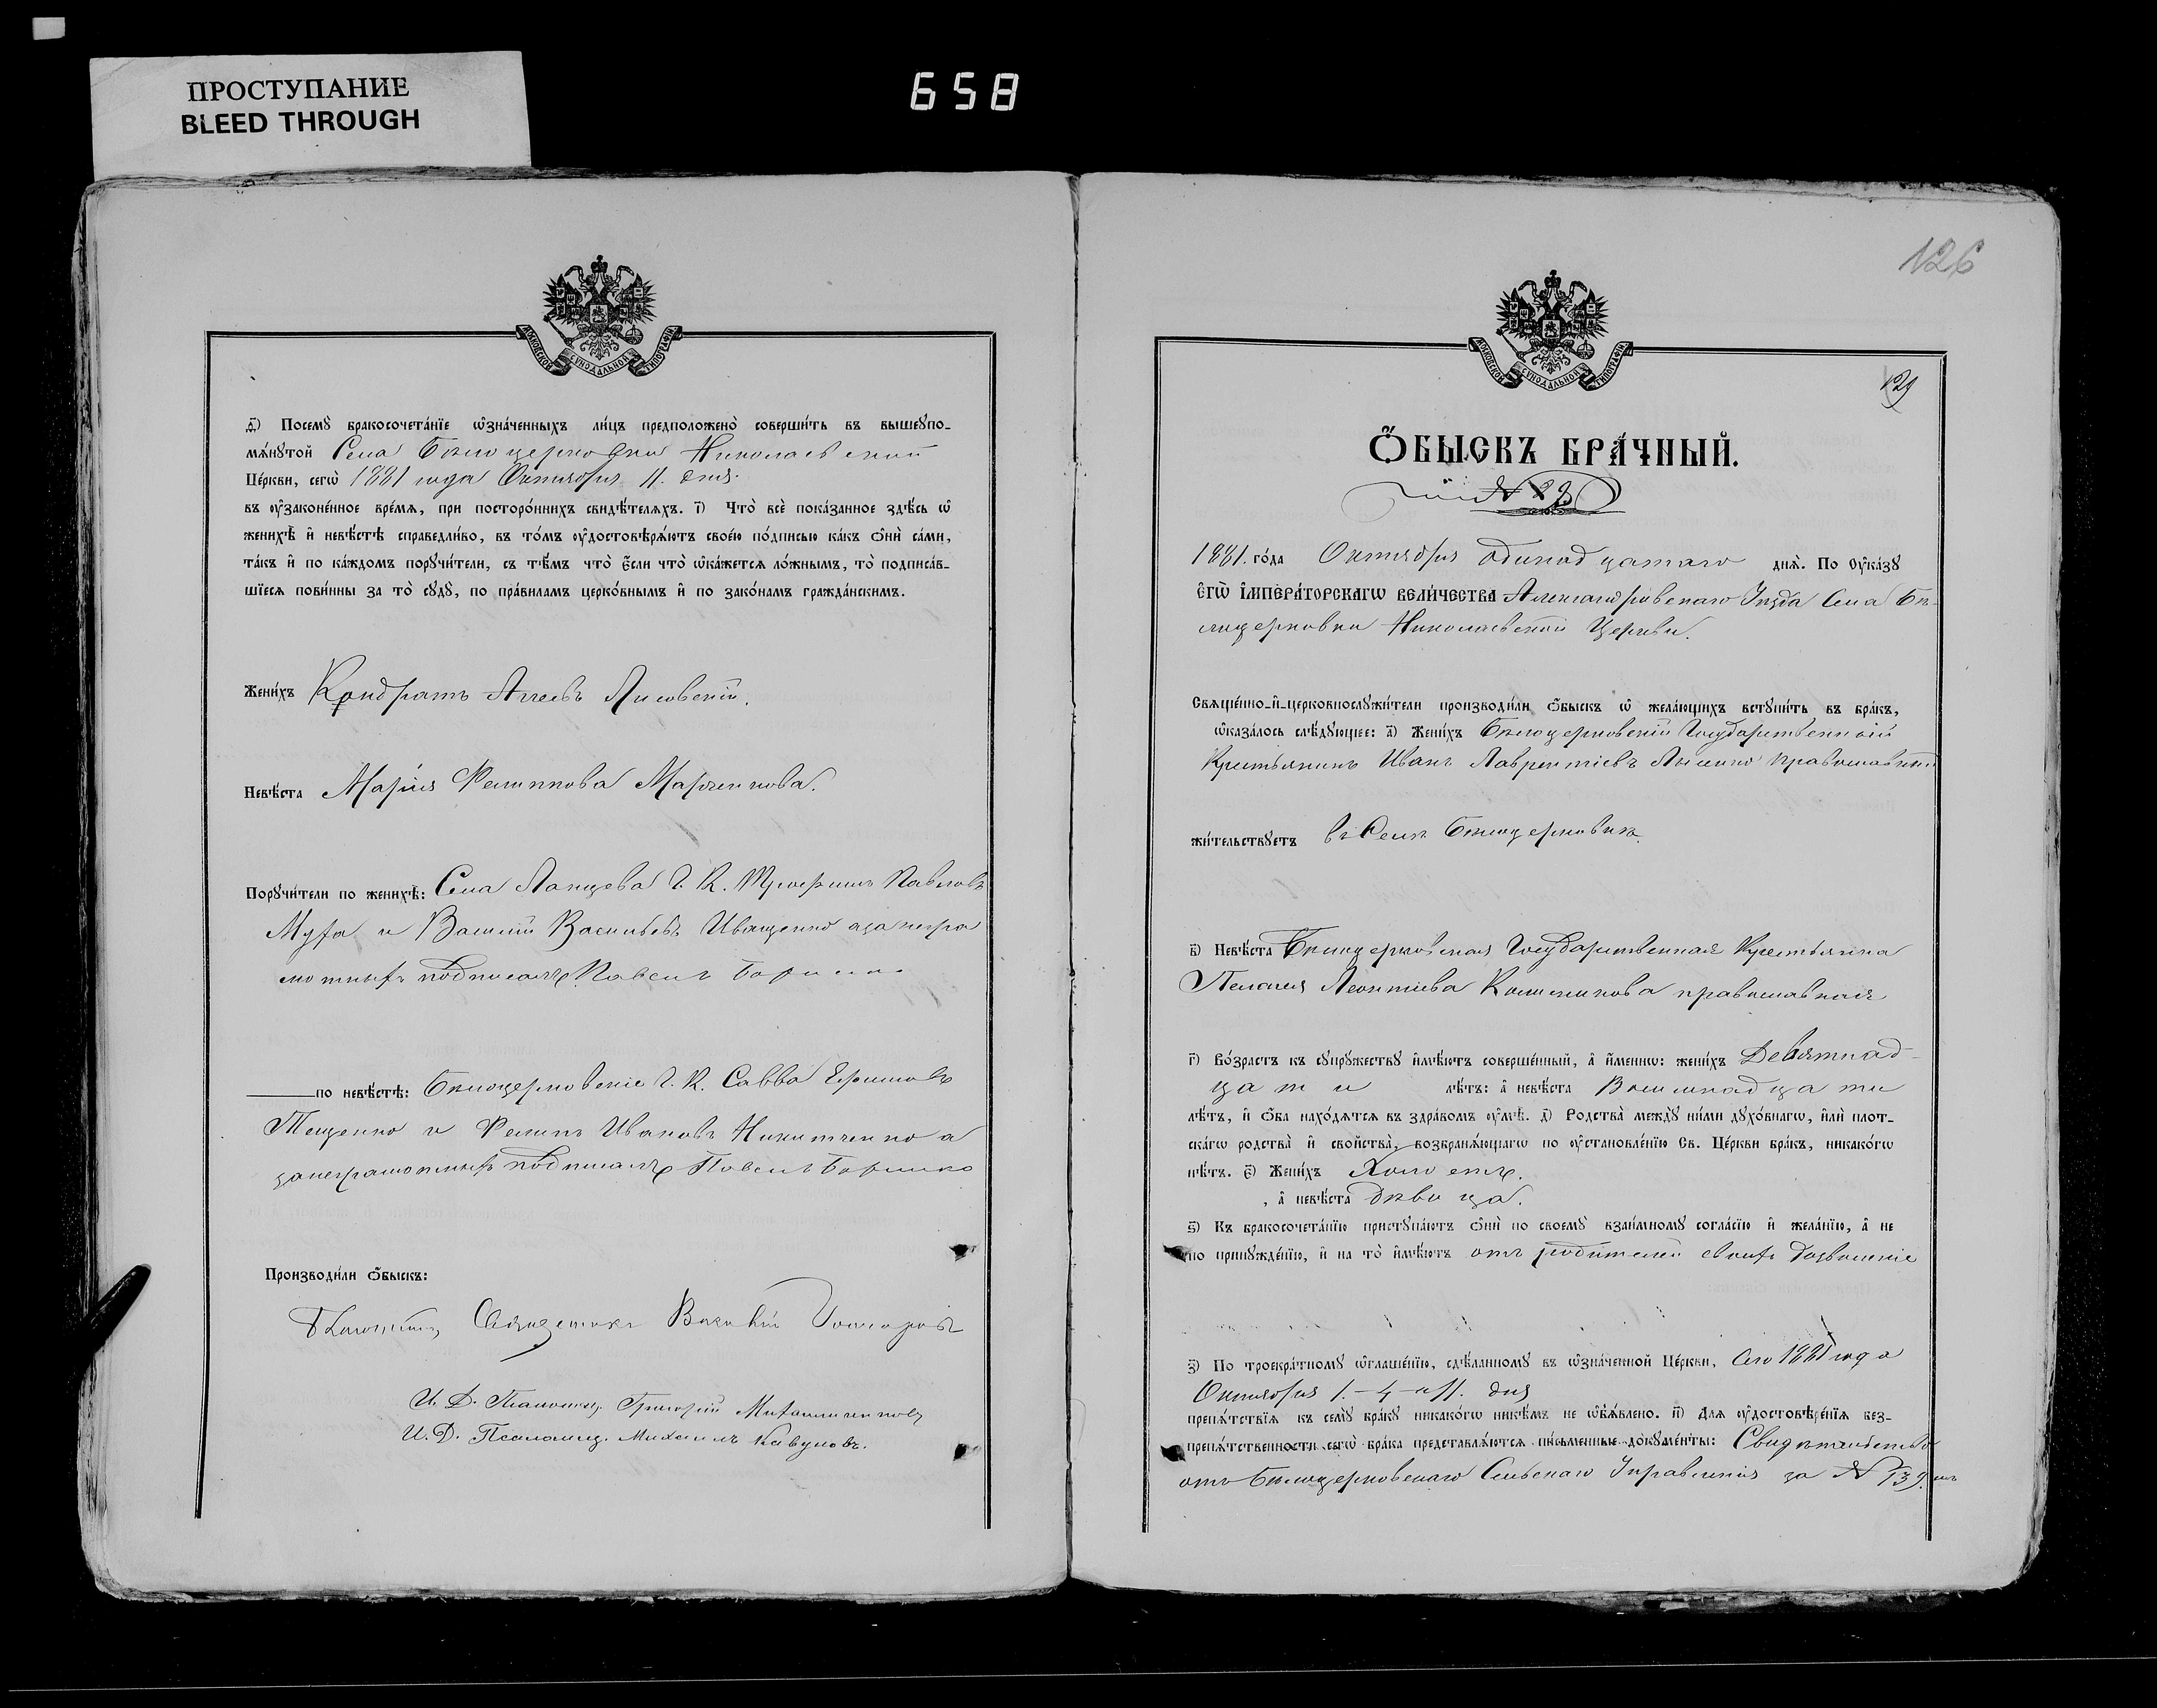 ПРОСТУПАНИЕ
BLEED THROUGH
658
МОСКОВСКОЙ СѴНОДАЛЬНОЙ ТИПОГРАФІИ
д҃і) Посемꙋ̀ бракосочета́нїе ѡ҆зна́ченныхъ ли́цъ предположено̀ соверши́ть въ вышеꙋпо-
мѧ́нꙋтой Села Бѣлоцерковки Николаевской
Це́ркви, сегѡ̀ 1881 года Октября 11. дня.
въ ᲂу҆зако́ненное вре́мѧ, при посторо́ннихъ свидѣ́телѧхъ. і҃) Что̀ всѐ пока́занное здѣ́сь ѡ҆
женихѣ̀ и҆ невѣ́стѣ справедли́во, въ то́мъ ᲂу҆достовѣрѧ́ютъ свое́ю по́дписью ка́къ ѻ҆нѝ са́ми,
та́къ и҆ по ка́ждомъ порꙋчи́тели, съ тѣ́мъ что̀ є҆́сли что̀ ѡ҆ка́жетсѧ ло́жнымъ, то̀ подписа́в-
шїесѧ пови́нны за то̀ сꙋдꙋ̀, по пра́виламъ церко́внымъ и҆ по зако́намъ гражда́нскимъ.
Жени́хъ Кондратъ Агеевъ Лисовскій.
Невѣ́ста Марія Филиппова Марченкова.
Порꙋчи́тели по женихѣ̀: Села Г. К. Трофимъ Павловъ
Мура и Василій Васильевъ Иващенко а за негра
мотныхъ подписалъ Павелъ
по невѣ́стѣ: Бѣлоцерковскіе Г. К. Савва Ефимовъ
Тещенко и Филипъ Ивановъ Никитченко а
за неграмотныхъ подписалъ Павелъ
Производи́ли ѻ҆́быскъ:
Священникъ Василій
И. Д. Псаломщ. Григорій
И. Д. Псаломщ. Михаилъ Кавуновъ.
126
МОСКОВСКОЙ СѴНОДАЛЬНОЙ ТИПОГРАФІИ
129
Ѻ҆́БЫСКЪ БРА́ЧНЫЙ.
№ 29
1881. го́да Октября одинадцатаго днѧ̀. По ᲂу҆ка́зꙋ
Є҆гѡ̀ І҆мпера́торскагѡ Вели́чества Александровскаго Уѣзда Села Бѣ-
лоцерковки Николаевской Церкви.
Свѧще́нно-и҆-церковнослꙋжи́тели производи́ли ѻ҆́быскъ ѡ҆ жела́ющихъ встꙋпи́ть въ бра́къ,
ѡ҆каза́лось слѣ́дꙋющее: а҃) Жени́хъ Бѣлоцерковскій Государственный
Крестьянинъ Иванъ Лаврентіевъ Лысенко православный
жи́тельствꙋетъ въ Селѣ Бѣлоцерковкѣ.
в҃) Невѣ́ста Бѣлоцерковская Государственная Крестьянка
Пелагія Леонтіева православная
г҃) Во́зрастъ къ сꙋпрꙋжествꙋ и҆мѣ́ютъ соверше́нный, а҆ и҆́меннѡ: жени́хъ Девятнад-
цати лѣ́тъ: а҆ невѣ́ста Восемнадцати
лѣ́тъ, и҆ ѻ҆́ба нахо́дѧтсѧ въ здра́вомъ ᲂу҆мѣ̀. д҃) Родства̀ междꙋ̀ ни́ми дꙋхо́внагѡ, и҆лѝ плот-
ска́гѡ родства̀ и҆ сво́йства̀, возбранѧ́ющагѡ по ᲂу҆становле́нїю Св. Це́ркви бра́къ, никако́гѡ
нѣ́тъ. є҃) Жени́хъ Холостъ.
, а҆ невѣ́ста дѣвица.
ѕ҃) Къ бракосочета́нїю пристꙋпа́ютъ ѻ҆нѝ по своемꙋ̀ взаи́мномꙋ согла́сїю и҆ жела́нїю, а҆ не
по принꙋжде́нїю, и҆ на то̀ и҆мѣ́ютъ отъ родителей своихъ дозволеніе
з҃) По троекра́тномꙋ ѡ҆глаше́нїю, сдѣ́ланномꙋ въ ѡ҆зна́ченной Це́ркви, сего 1881 года
Октября 1.-4-и 11. дня
препѧ́тствїѧ къ семꙋ̀ бра́кꙋ никако́гѡ никѣ́мъ не ѡ҆б̾ѧ́влено. и҃) Длѧ ᲂу҆достовѣре́нїѧ без-
препѧ́тственности сегѡ̀ бра́ка представлѧ́ютсѧ пи́сьменные докꙋме́нты: Свидѣтельство
отъ Бѣлоцерковскаго Сельскаго Управленія за № 139.